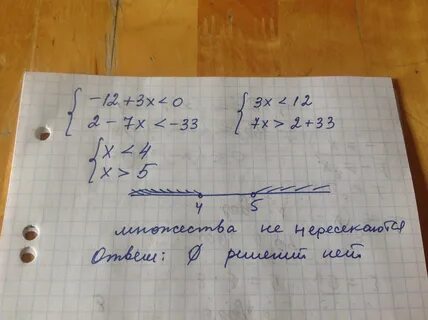 { -12+3x<0 { 3x<12
2-7x<-33 7x>2+33
{ x<4
x>5
4 5
множества не пересекаются
Ответ: ∅ решений нет